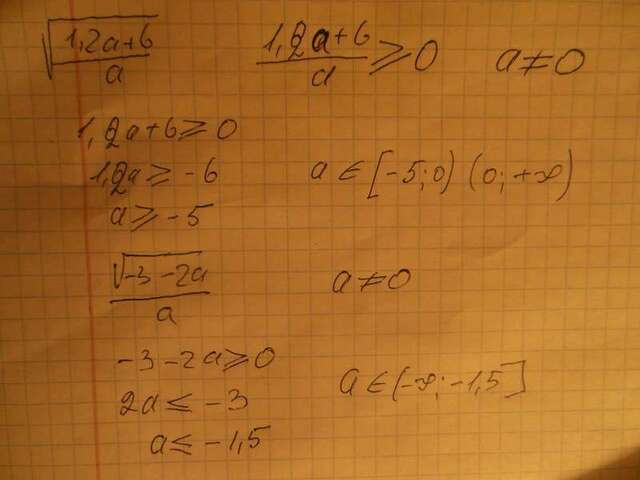 √(1,2a+6)/a    (1,2a+6)/a ⩾ 0    a ≠ 0
1,2a+6 ⩾ 0
1,2a ⩾ -6    a ∈ [-5;0) (0;+∞)
a ⩾ -5
√(-3-2a)/a    a ≠ 0
-3-2a ⩾ 0
2a ⩽ -3    a ∈ (-∞;-1,5]
a ⩽ -1,5